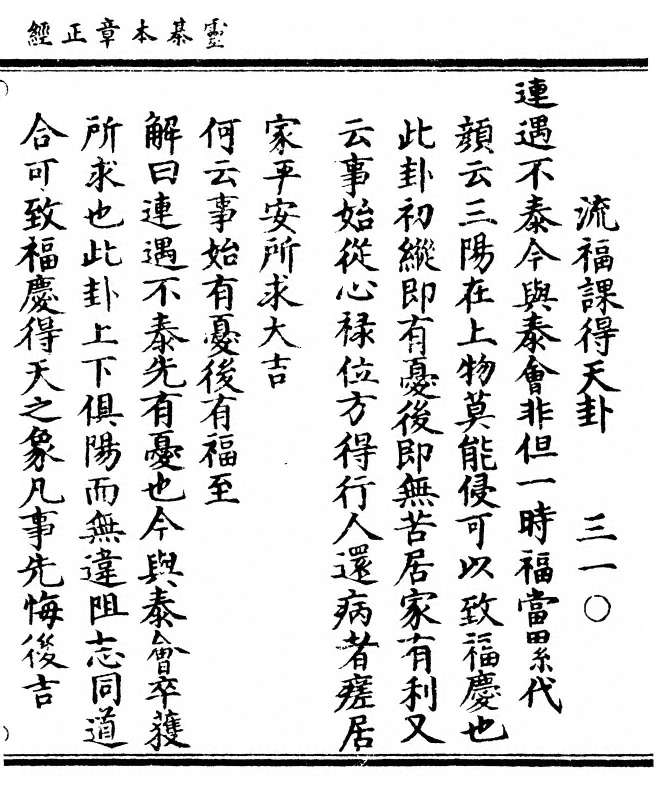 靈棊本章正經
流福課得天卦 三一〇
連遇不泰今與泰會非但一時福當累代
顔云三陽在上物莫能侵可以致福慶也
此卦初縱即有憂後即無苦居家有利又
云事始從心祿位方得行人還病者瘥居
家平安所求大吉
何云事始有憂後有福至
解曰連遇不泰先有憂也今與泰會卒獲
所求也此卦上下俱陽而無違阻志同道
合可致福慶得天之象凡事先悔後吉